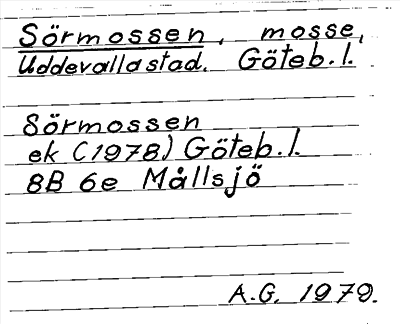 Sörmossen, mosse,
Uddevalla stad. Göteb. l.
Sörmossen
ek (1978) Göteb. l.
8B 6e Mållsjö
A.G. 1979.